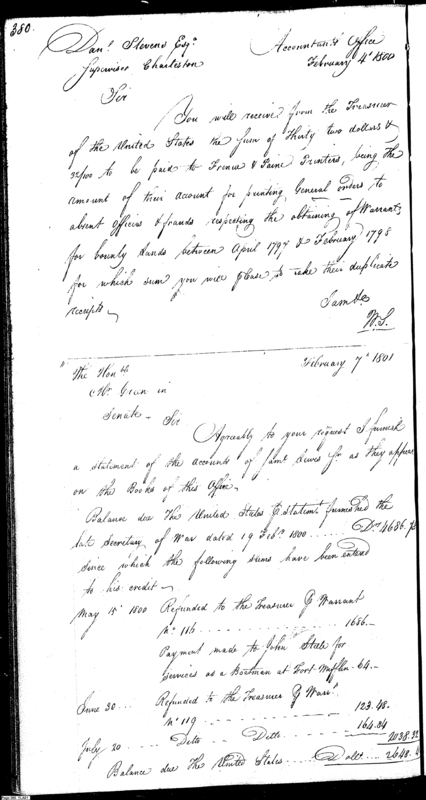 380.
Danl. Stevens Esqr.
Supervisor Charleston
Accountants Office
February 4th 1800
Sir
You will receive from the Treasurer
of the United States the sum of Thirty two dollars &
32/100 to be paid to & Paine Printers, being the
amount of their account for printing General orders to
absent Officers & frauds respecting the obtaining of Warrants
for bounty Lands between April 1797 & February 1798
for which sum you will please to take their duplicate
receipts
I am &c
W.S.
February 7th 1801
The Honble
Mr. Green in
Senate
Sir
Agreeably to your request I furnish
a statement of the accounts of Saml Lewis Sr. as they appear
on the Books of this Office.
Balance due The United States statement furnished the
late Secretary of War dated 19 Feby 1800 Drs 4686.
since which the following sums have been entered
to his credit
May 15th 1800 Refunded to the Treasurer Warrant
No. 116 1686.
Payment made to John Steele for
services as a Boatman at Fort Mifflin 64.
June 30 Refunded to the Treasurer Warrt.
No. 119 123.48.
July 20 Ditto Ditto 164.84
2038.32
Balance due the United States Dolls. 2648.